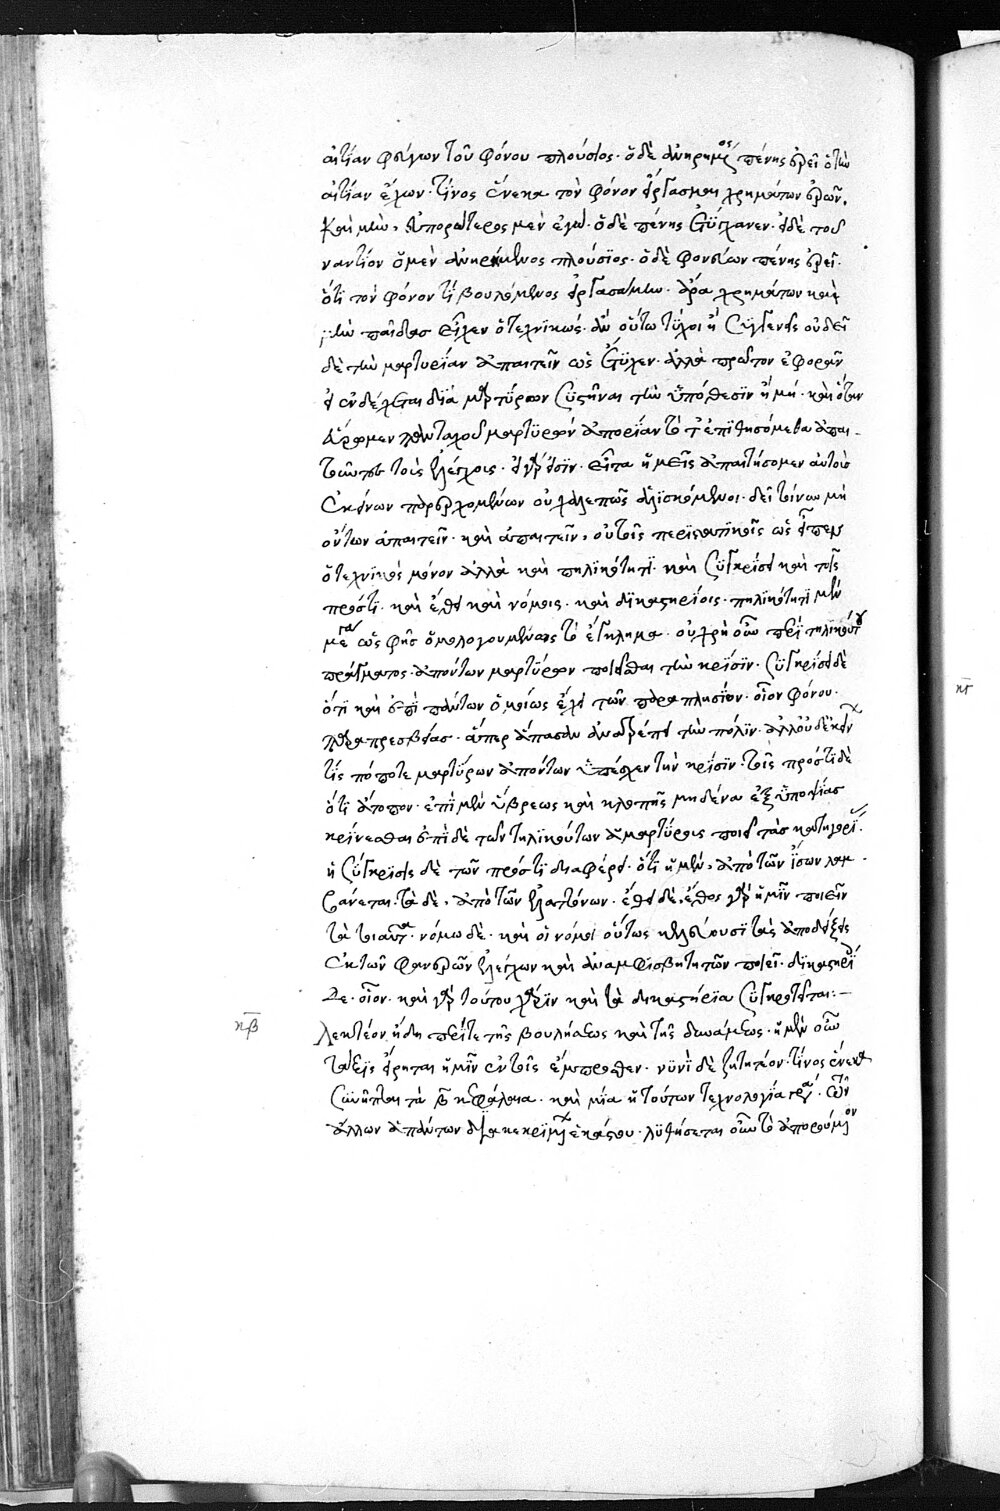 αἰτίαν φεύγων τοῦ φόνου πλούσιος· ὁ δὲ ἀνῃρημένος πένης ἐρεῖ ὁ τὴν
αἰτίαν ἔχων· τίνος ἕνεκα τὸν φόνον εἴργασμαι χρημάτων ἐρῶν·
καὶ μὴν, εὐπορώτερος μὲν ἐγὼ· ὁ δὲ πένης ἐτύγχανεν· εἰ δὲ τοὐ
ναντίον ὁ μὲν ἀνῃρημένος πλούσιος· ὁ δὲ φονεύων πένης ἐρεῖ·
ὅτι τὸν φόνον τί βουλόμενος εἰργασάμην· ἆρα χρημάτων καὶ
μὴν παῖδας εἶχεν ὁ τεχνικώς· ἂν οὕτω τύχοι ἢ συγγενεῖς οὐ δεῖ
δὲ τὴν μαρτυρίαν ἀπαιτεῖν ὡς ἔτυχεν· ἀλλὰ πρῶτον ἐφορᾶν
εἰ ἐνδέχεται διὰ μαρτύρων συστῆναι τὴν ὑπόθεσιν ἢ μή· καὶ ὅταν
εὕρωμεν πανταχοῦ μαρτύρων ἀπορίαν τότε ἐπιθησόμεθα ἀπαι-
τοῦντες τοὺς ἐλέγχους· εἰ γάρ εἰσιν· εἶτα ἡμεῖς ἀπαιτήσομεν αὐτοὺς
ἐκείνων παρερχομένων οὐ χαλεπῶς ἁλισκόμενοι· δεῖ τοίνυν μὴ
ὄντων ἀπαιτεῖν· καὶ ἀπαιτεῖν, οὐ τοῖς περιστατικοῖς ὡς εἶπεν
ὁ τεχνικὸς μόνον ἀλλὰ καὶ πηλικότητι· καὶ συγκρίσει καὶ τοῖς
πρός τι· καὶ ἔθει καὶ νόμοις· καὶ δικαστηρίοις· πηλικότητι μὲν
μέγα ὡς φῂς ὁμολογουμένως τὸ ἔγκλημα· οὐ χρὴ οὖν περὶ τηλικούτου
πράγματος ἀπόντων μαρτύρων ποιεῖσθαι τὴν κρίσιν· συγκρίσει δὲ
ὅτι καὶ ἐπὶ πάντων ὁμοίως ἔχει τῶν παραπλησίων· οἷον φόνου·
παραπρεσβείας· ἅπερ ἅπασαν ἀνατρέπει τὴν πόλιν· ἀλλ' οὐδὲ κἂν
τίς πόποτε μαρτύρων ἀπόντων ὑπέσχεν τὴν κρίσιν· τοῖς πρός τι δὲ
ὅτι ἄτοπον· ἐπὶ μὲν ὕβρεως καὶ κλοπῆς μηδένα ἐξ ὑποψίας
κρίνεσθαι ἐπὶ δὲ τῶν τηλικούτων ἀμαρτύρους ποιεῖ τὰς κατηγορί·
ἡ σύγκρισις δὲ τῶν πρός τι διαφέρει· ὅτι ἡ μὲν, ἀπὸ τῶν ἴσων λαμ-
βάνεται. τὰ δὲ, ἀπὸ τῶν ἐλαττόνων· ἔθει δὲ, ἔθος γὰρ ἡμῖν ποιεῖν
τὰ τοιαῦτα· νόμω δὲ· καὶ οἱ νόμοι οὕτως κελεύουσι τὰς ἀποδείξεις
ἐκ τῶν φανερῶν ἐλέγχων καὶ ἀναμφισβητητῶν ποιεῖ· δικαστηρί
δε· οἷον· καὶ γὰρ τούτου χάριν καὶ τὰ δικαστήρια συγκροτεῖται:—
κβ λεκτέον ἤδη περί τε τῆς βουλήσεως καὶ τῆς δυνάμεως· ἡ μὲν οὖν
τάξις εἴρηται ἡμῖν ἐν τοῖς ἔμπροσθεν· νυνὶ δὲ ζητητέον· τίνος ἕνεκα
συνῆπται τὰ β κεφάλαια· καὶ μία ἡ τούτων τεχνολογία γέγ· τῶν
ἄλλων ἁπάντων διακεκριμένου ἑκάστου· λυθήσεται οὖν τὸ ἀπορούμενον
κγ